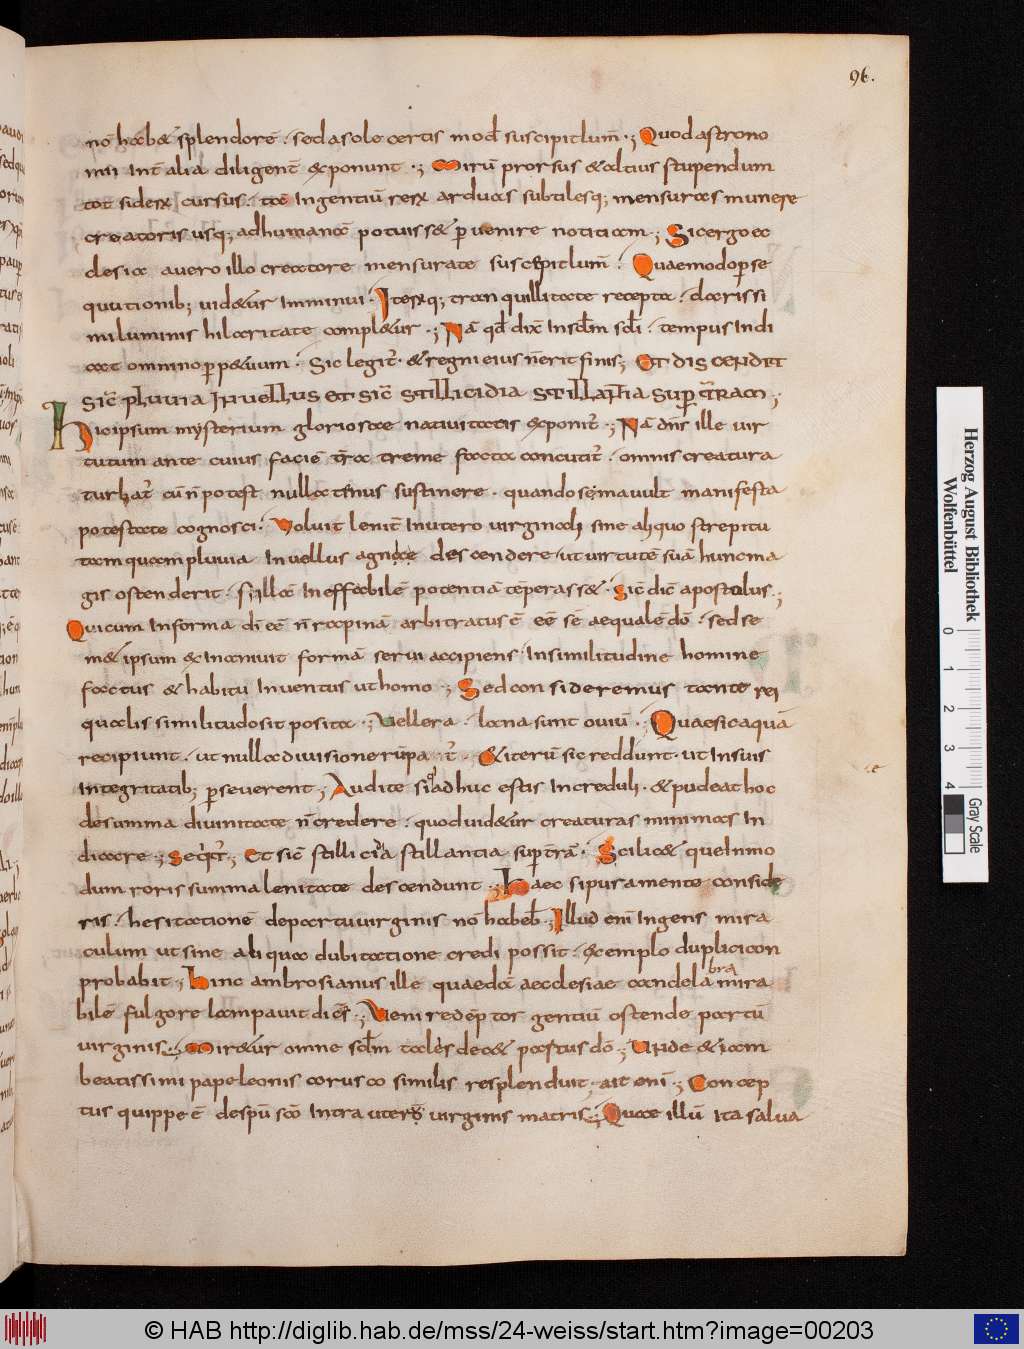 96.
nō hab& splendorē . sed a sole certis mod̄ suscipit lum̄ . ; Quod astrono
mii int̄ alia diligent̄ exponunt . ; Mirū prorsus & altius stupendum
tot siderꝝ cursus . tā ingentiū rerꝝ arduas subtilesq; mensuras munere
creatoris usq; ad humanā potuisse ꝑuenire notitiam . ; Sic ergo ec
clesia a uero illo creatore mensurate suscepit lum̄ . Quae modo ꝑse
quutionib; uid&ur imminui . Iterꝝq; tranquillitate recepta . clarissi
mi luminis hilaritate compl&ur . ; Nā qd̄ dix̄ in scl̄m scl̄i . tempus indi
cat omnino ꝑp&uum . Sic legit̄ . & regni eius n̄ erit finis ; ET DISCENDIT
SIC̄ PLUUIA IN UELLUS ET SIC̄ STILLICIDIA STILLANTIA SUPER TERRAM .;
Hic ipsum mysterium gloriosae natiuitatis exponit̄ . ; Nā dn̄s ille uir
tutum ante cuius faciē tr̄a treme facta concutit̄ . omnis creatura
turbat̄ cū n̄ potest nullatenus sustinere . quando se mauult manifesta
potestate cognosci . Voluit lenit̄ in utero uirginali sine aliquo strepitu
tamquam pluuia in uellus agnae descendere . ut uirtutē suā hunc ma
gis ostenderit . si illā ineffabilē potentiā tēperasse . Sic̄ dic̄ apostolus .;
Qui cum in forma dī eē n̄ rapinā arbitratus ē eē sē aequalē dō . sed se
m& ipsum exinaniuit formā serui accipiens . in similitudine homine
factus & habitu inuentus ut homo . ; Sed consideremus tante rei
qualis similitudo sit posita . ; Uellera . lana sunt ouiū . ; Quae sic aquā
recipiunt . ut nulla diuisione rūpat̄ . & iterū sic reddunt . ut in suis
integritatib; ꝑseuerent . ; Audite si adhuc estis increduli . & pudeat hoc
de summa diuinitate n̄ credere . quod uid&ur creaturas minimas in
dicare . ; Seqt̄ . ; Et sic̄ stillicidia stillantia suꝑ trā . Scilic& que in mo
dum roris summa lenitate descendunt . ; Haec si pura mente conside
ris . hesitationē de partu uirginis nō habeb̄ . ; Illud enī ingens mira
culum ut sine aliqua dubitatione credi possit . exemplo duplici con
probabit . ; Hinc ambrosianus ille quaedā aecclesiae candelabra mira
bilē fulgore lampauit diēs . ; Veni redeptor gentiū ostende partū
uirginis . ; Mir&ur omne scl̄m talis dec& partus dō . ; Unde & iam
beatissimi pape leonis corusco similis resplenduit . ait enī . ; Concep
tus quippe ē de spū sco intra uterū uirginis matris . ; Quae illū ita salua
Herzog August Bibliothek
Wolfenbüttel
0 1 2 3 4
Gray Scale
© HAB http://diglib.hab.de/mss/24-weiss/start.htm?image=00203